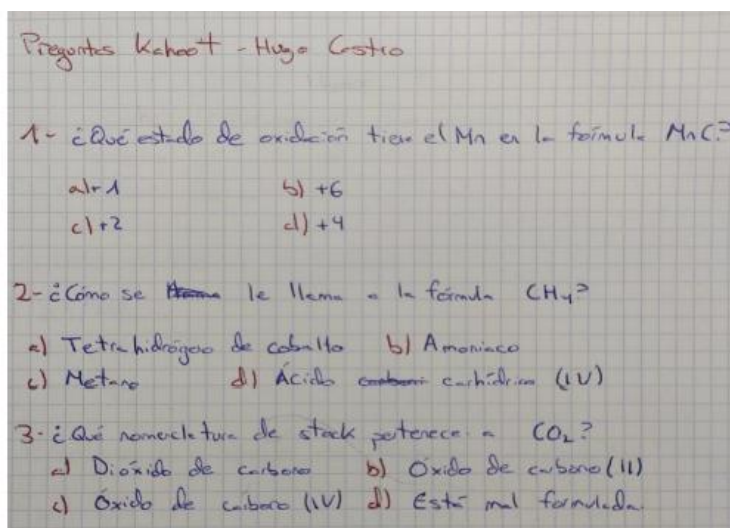 Preguntas Kahoot - Hugo Castro
1- ¿Qué estado de oxidación tiene el Mn en la fórmula MnC?
a) +1 b) +6
c) +2 d) +4
2- ¿Cómo se le llama a la fórmula CH4?
a) Tetrahidrógeno de cobalto b) Amoniaco
c) Metano d) Ácido carhídrico (IV)
3- ¿Qué nomenclatura de stock pertenece a CO2?
a) Dióxido de carbono b) Óxido de carbono (II)
c) Óxido de carbono (IV) d) Está mal formulada.